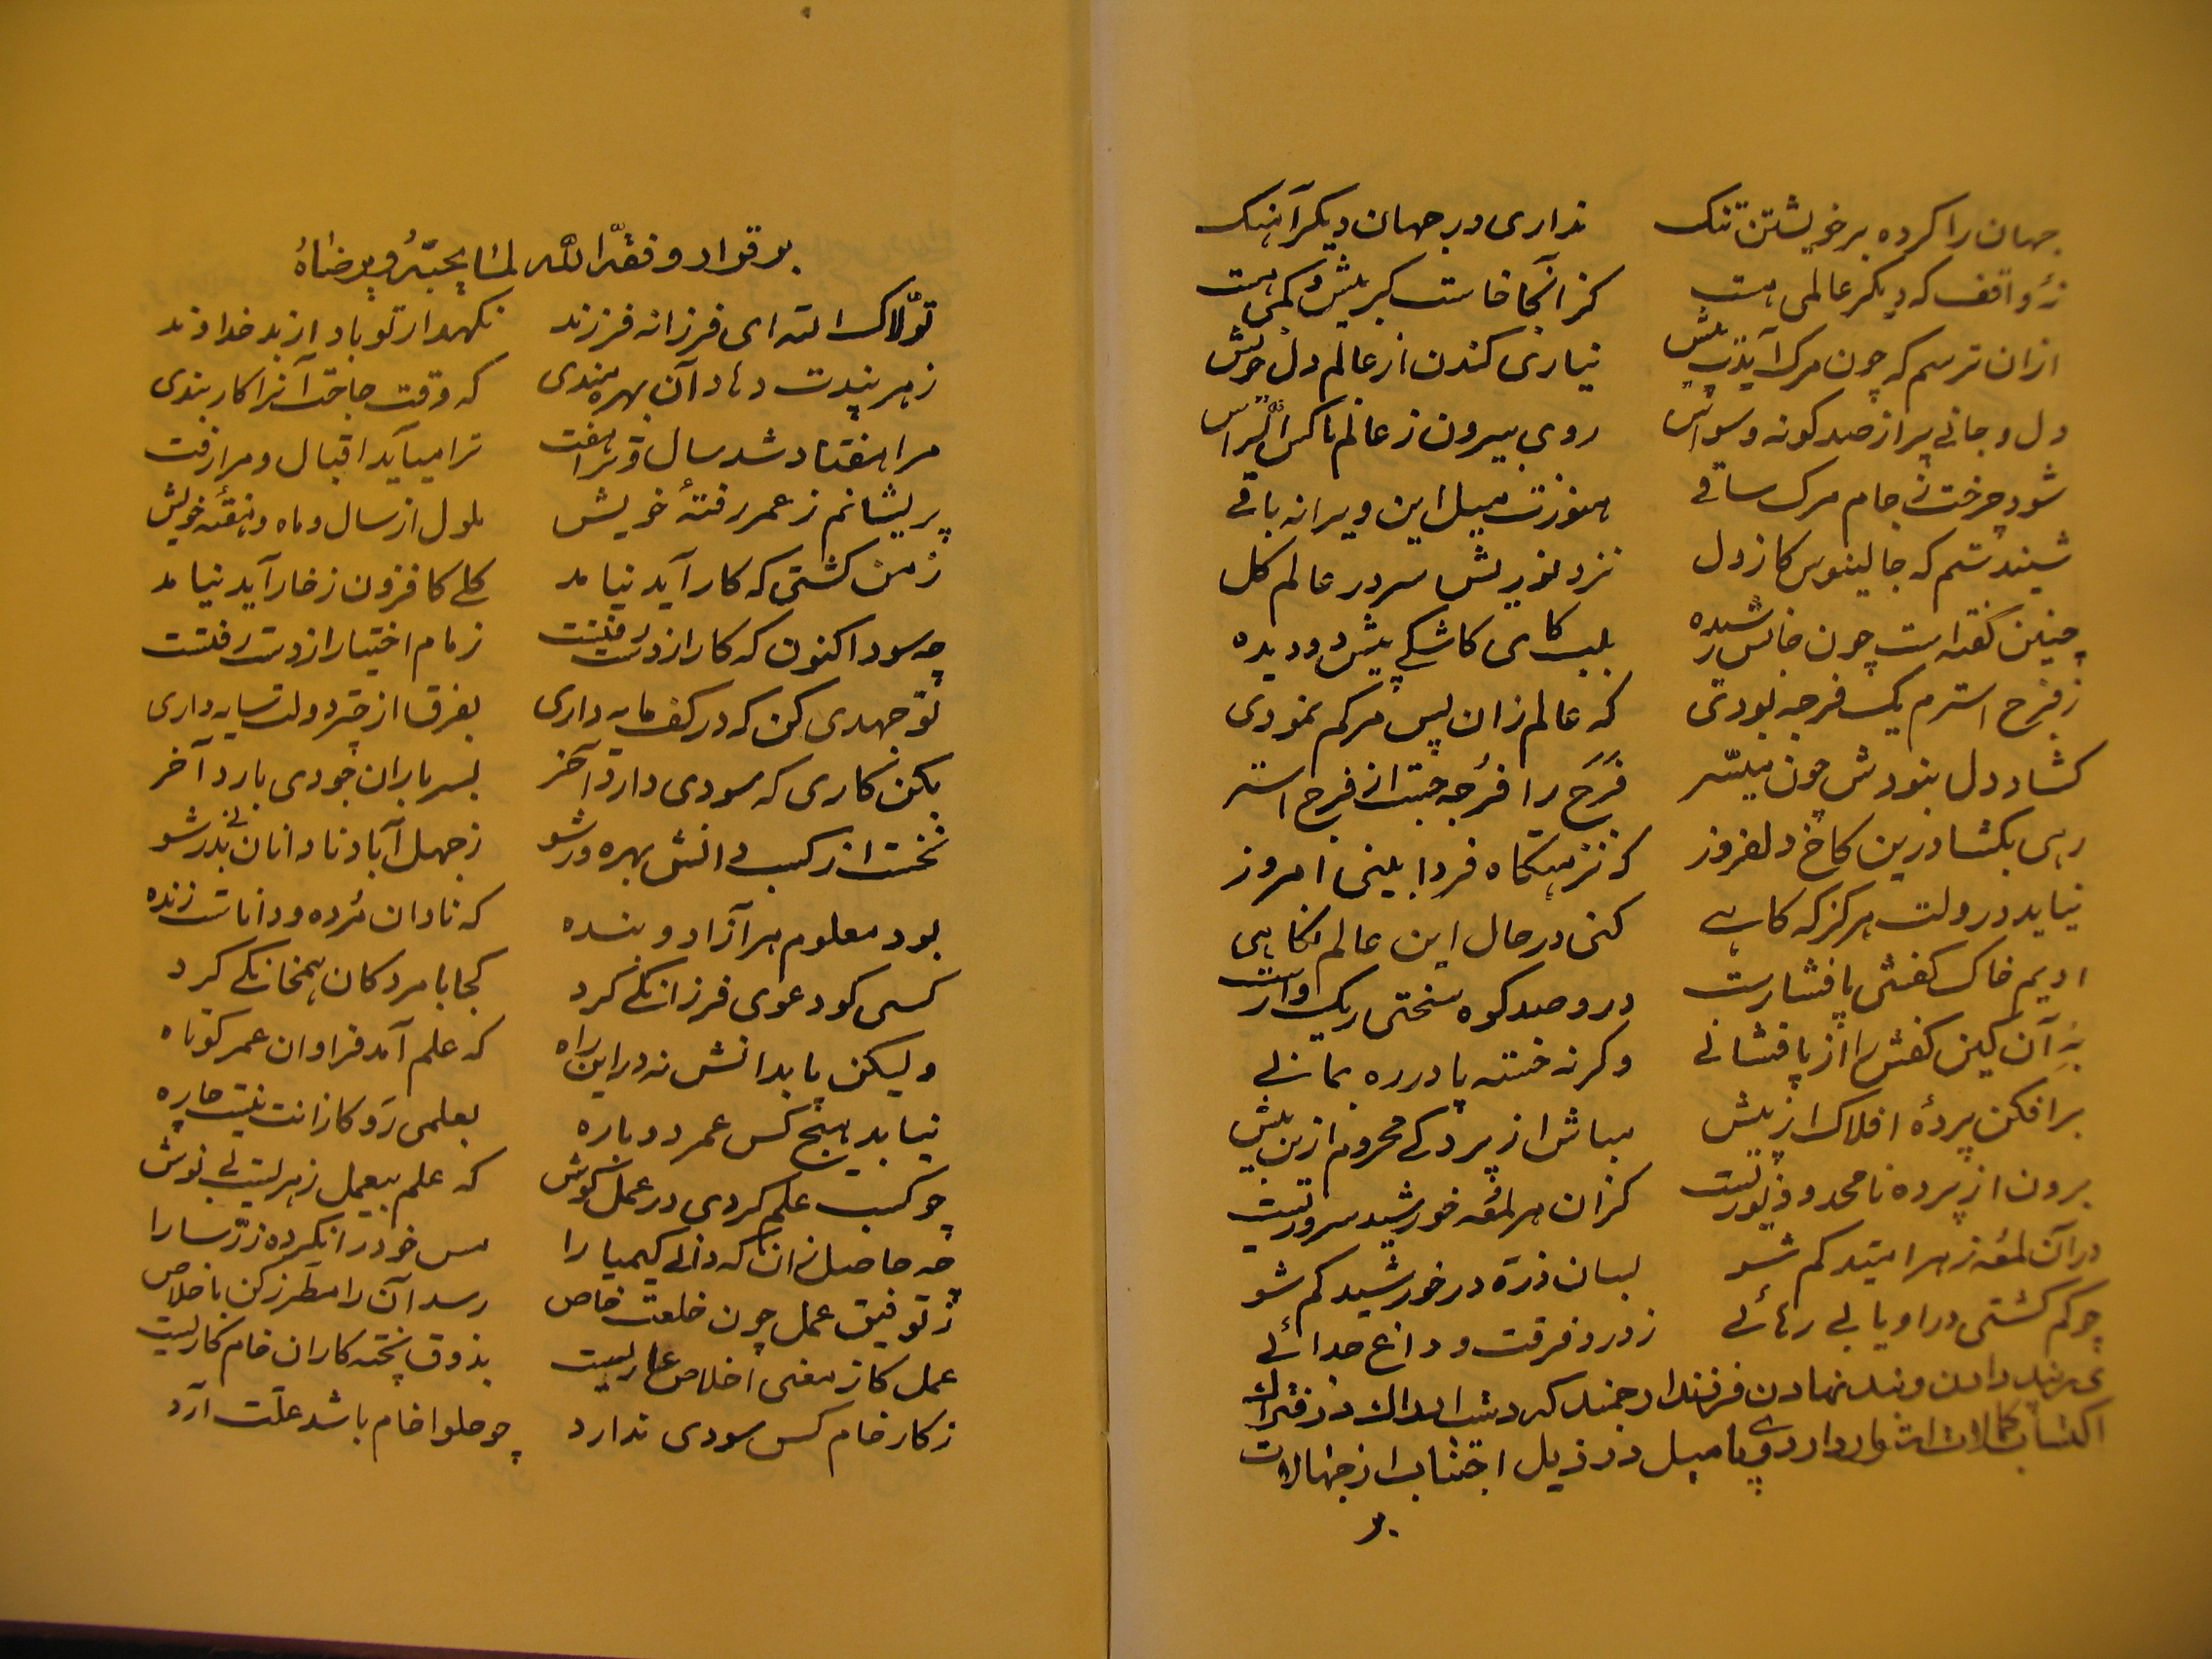 جهان را کرده بر خویشتن تنک نداری در جهان دیکر آهنک
نهٔ واقف که دیکر عالمی هست کز آنجا خاست کر بیش و کمی هست
ازان ترسم که چون مرک آیدت پیش نیاری کندن از عالم دل خویش
دل و جانی پر از صد کونه وسواس روی بیرون ز عالم ناکس الراس
شود چرخت ز جام مرک ساقی هنوزت میل این ویرانه باقی
شیندستم که جالینوس کازول نزد نوریش سر در عالم کل
چنین کفته است چون جانش رسیده بلب کای کاشکی پیش دو دیده
ز فرج استرم یک فرجه بودی که عالم زان پس مرکم نمودی
کشاد دل نبودش چون میسّر فَرَج را فُرجه جست از فرج استر
رهی بکشا درین کاخ دلفروز که نزهتکاه فردا بینی امروز
نیاید در دلت هرکز که کاهی کنی در حال این عالم نکاهی
ادیم خاک کفش پا فشارت درو صد کوه سختی ریک وارست
به آن کین کفش را از پا فشانی وکرنه خسته پا در ره بمانی
برافکن پردهٔ افلاک از پیش مباش از پردکی محروم ازین بیش
برون از پرده نامحدود نوریست کزان هر لمعه خورشید سروریست
در آن لمعه ز هر امید کم شو بسان ذره در خورشید کم شو
چو کم کشتی در او یابی رهائی ز درد فرقت و داغ جدائی
پند دادن و بند نهادن فرزند ارجمند که دست ادراک در فتراک
اکتساب کمالات استوار دارد و پای میل در ذیل اجتناب از جهالات
بر
بر قرار وفقه الله لما یحبّهُ و یرضاهُ
تولّاک الله ای فرزانه فرزند نکهدار تو باد از بد خداوند
ز هر پندت دهاد آن بهره‌مندی که وقت حاجت آنرا کار بندی
مرا هفتاد شد سال و ترا هفت ترا میآید اقبال و مرا رفت
پریشانم ز عمر رفتهٔ خویش ملول از سال و ماه و هفتهٔ خویش
ز من کشتی که کار آید نیامد کلی کافزون ز خار آید نیامد
چه سود اکنون که کار از دست رفتست زمام اختیار از دست رفتست
تو جهدی کن که در کف مایه داری بفرق از چتر دولت سایه داری
بکن کاری که سودی دارد آخر بسر باران جودی بارد آخر
نخست از کسب دانش بهره‌ور شو ز جهل آباد نادانان بدر شو
بود معلوم هر آزاد و بنده که نادان مرده و داناست زنده
کسی کو دعوی فرزانکی کرد کجا با مردکان همخانکی کرد
ولیکن پا بدانش نه در این راه که علم آمد فراوان عمر کوتاه
نیابد هیچ کس عمر دوباره بعلمی رَو کز آنت نیست چاره
چو کسب علم کردی در عمل کوش که علم بیعمل زهریست بی نوش
چه حاصل زان که دانی کیمیا را مس خود را نکرده زر سارا
ز توفیق عمل چون خلعت خاص رسد آن را مطرز کن باخلاص
عمل کاز معنی اخلاص عاریست بذوق پخته کاران خام کاریست
ز کار خام کس سودی ندارد چو حلوا خام باشد علّت آرد